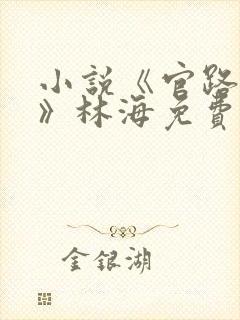 小説《官路
》林海免費
金銀湖